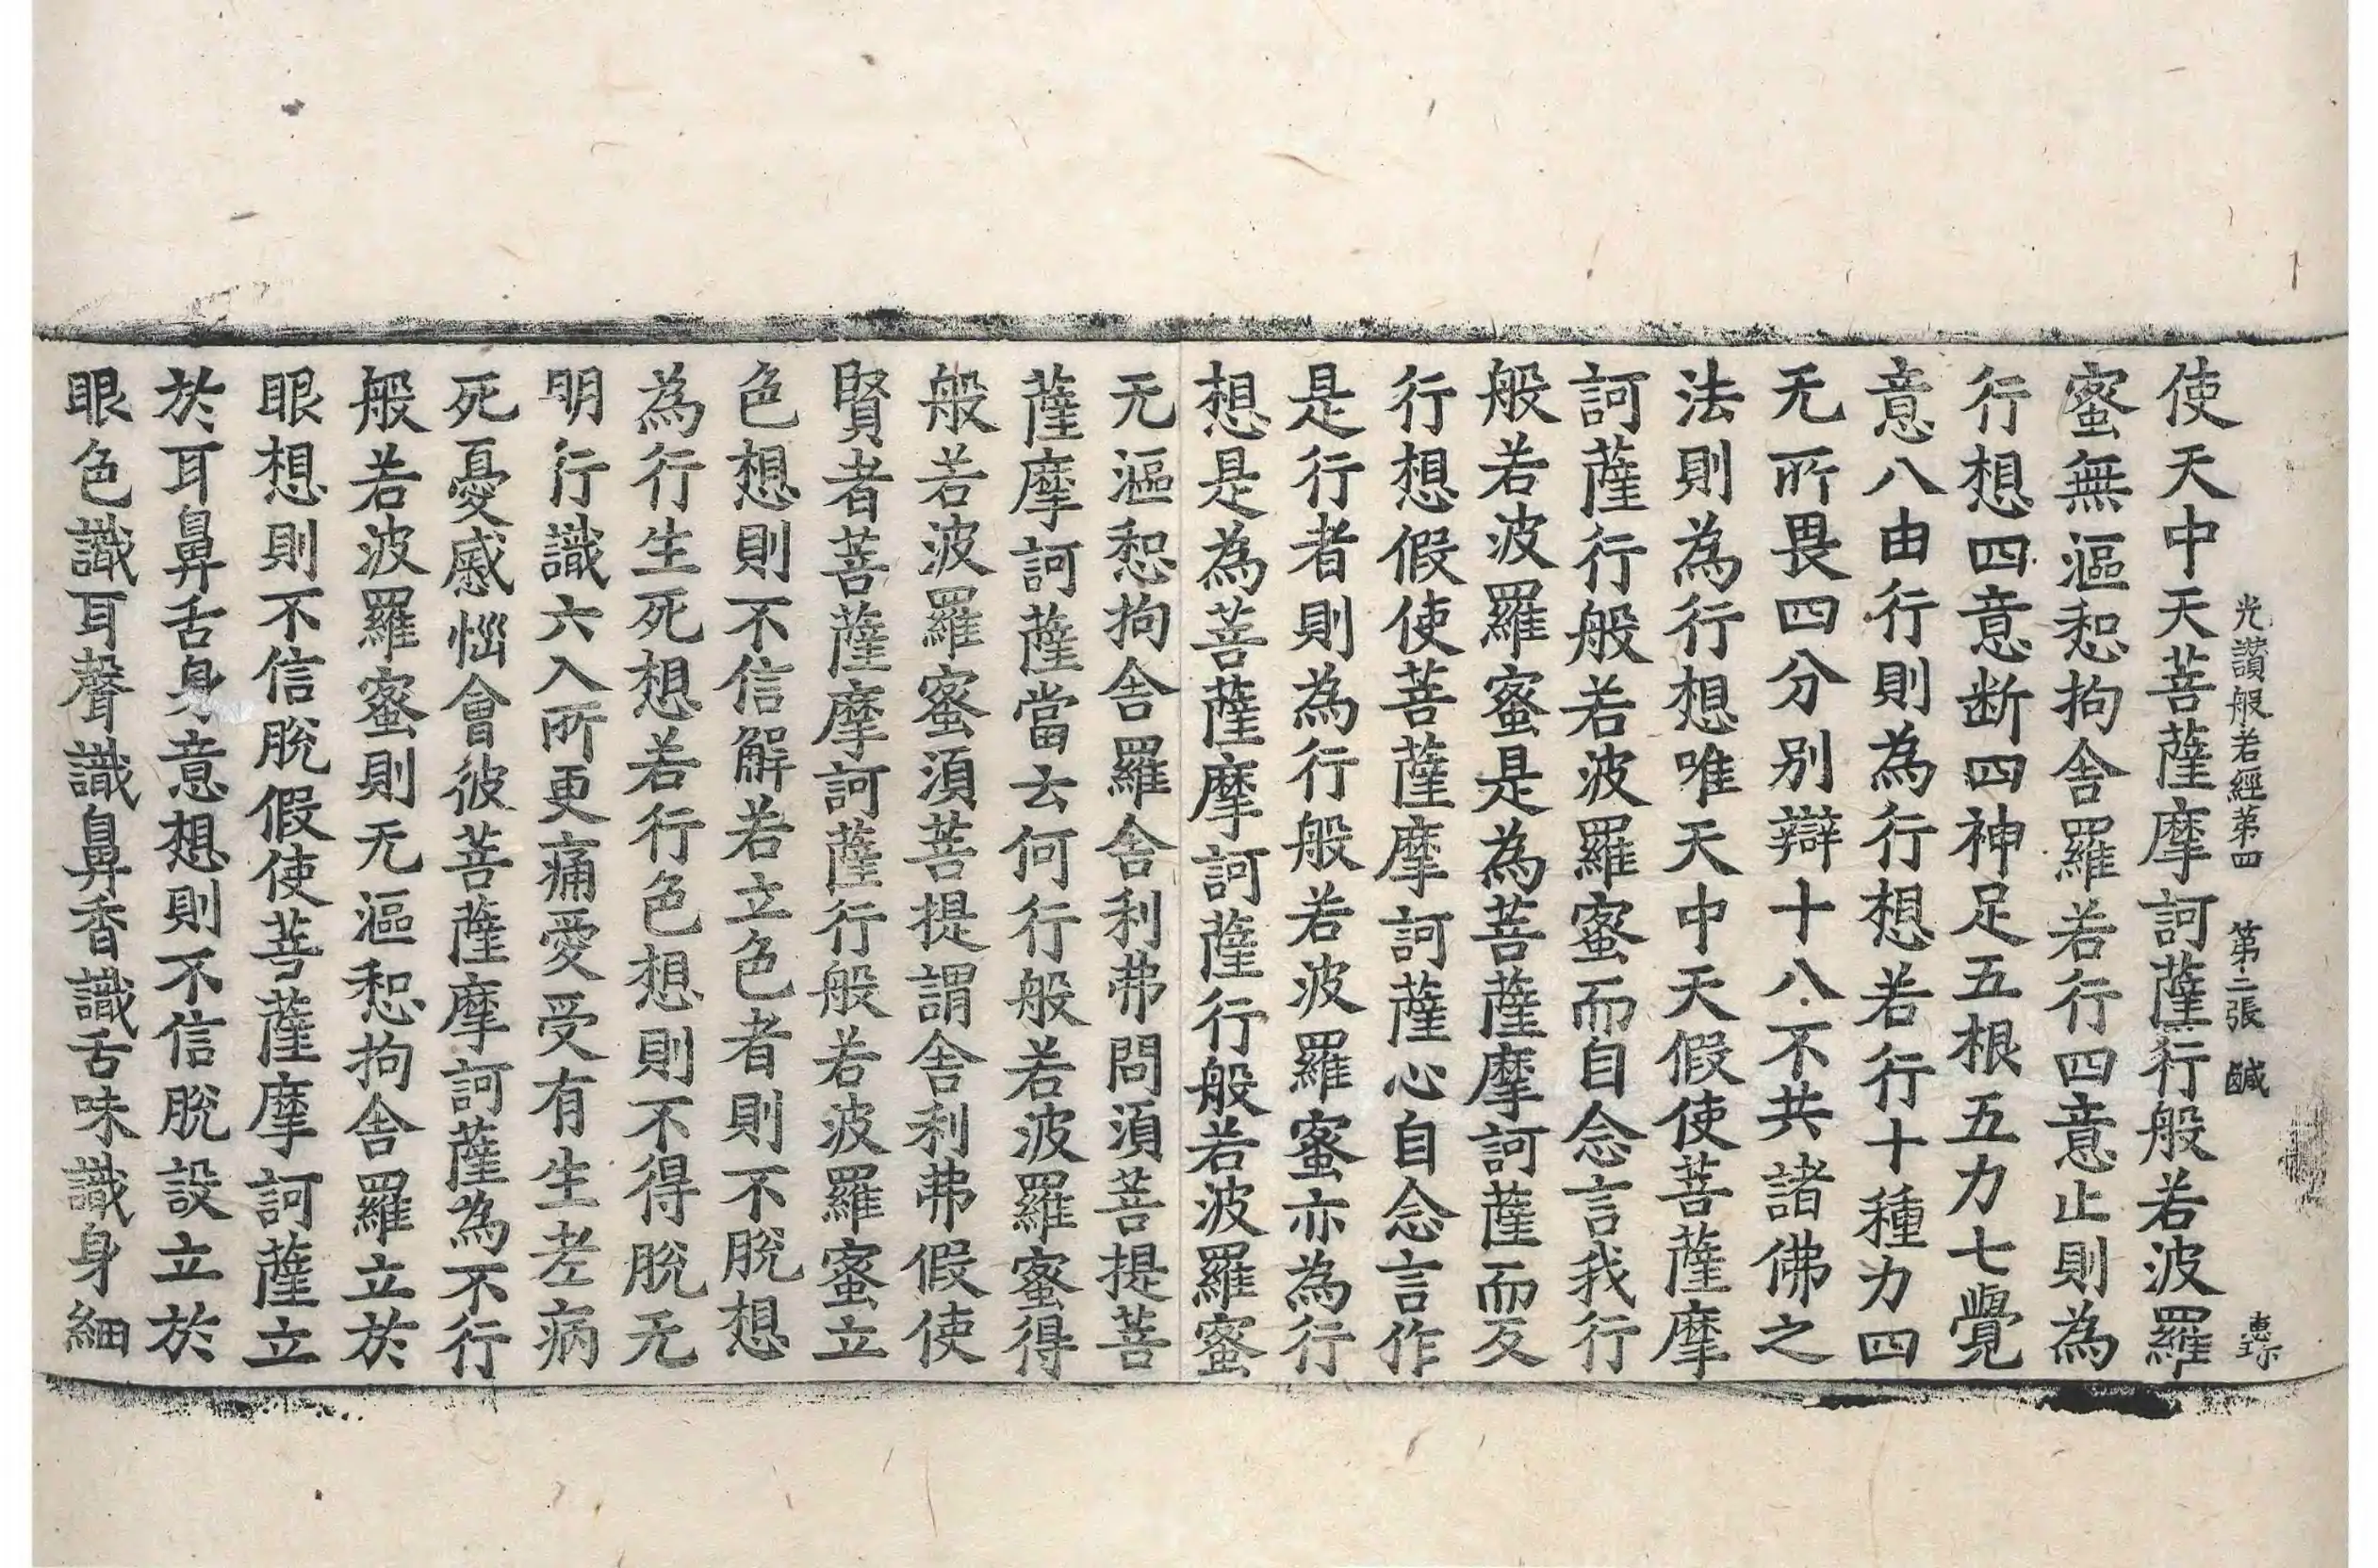 光讚般若經第四 第二張 鹹
使天中天菩薩摩訶薩行般若波羅
蜜無漚惒拘舍羅若行四意止則為
行想四意断四神足五根五力七覺
意八由行則為行想若行十種力四
无所畏四分别辯十八不共諸佛之
法則為行想唯天中天假使菩薩摩
訶薩行般若波羅蜜而自念言我行
般若波羅蜜是為菩薩摩訶薩而反
行想假使菩薩摩訶薩心自念言作
是行者則為行般若波羅蜜亦為行
想是為菩薩摩訶薩行般若波羅蜜
无漚惒拘舍羅舍利弗問湏菩提菩
薩摩訶薩當云何行般若波羅蜜得
般若波羅蜜湏菩提謂舍利弗假使
賢者菩薩摩訶薩行般若波羅蜜立
色想則不信解若立色者則不脫想
為行生死想若行色想則不得脫无
明行識六入所更痛愛受有生老病
死憂慼惱會彼菩薩摩訶薩為不行
般若波羅蜜則无漚惒拘舍羅立於
眼想則不信脫假使菩薩摩訶薩立
於耳鼻舌身意想則不信脫設立於
眼色識耳聲識鼻香識舌味識身細